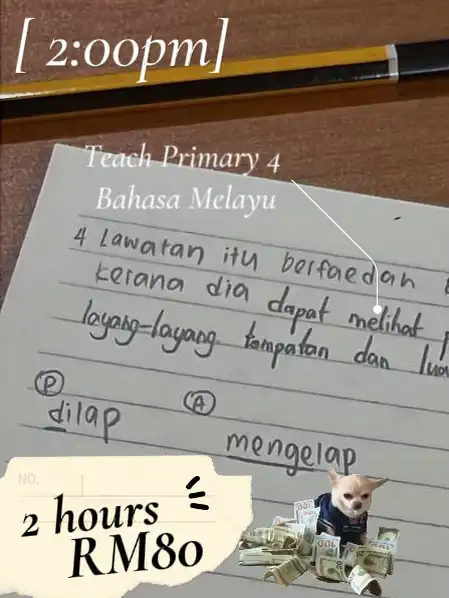 [ 2:00pm]
Teach Primary 4
Bahasa Melayu
4 Lawatan itu berfaedah
kerana dia dapat melihat
layang-layang tempatan dan
P
A
dilap
mengelap
NO.
2 hours
RM80